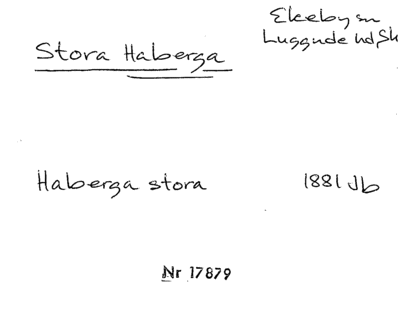 Ekeby sn
Luggude hd, Sk
Stora Haberga
Haberga stora 1881 Jb
Nr 17879